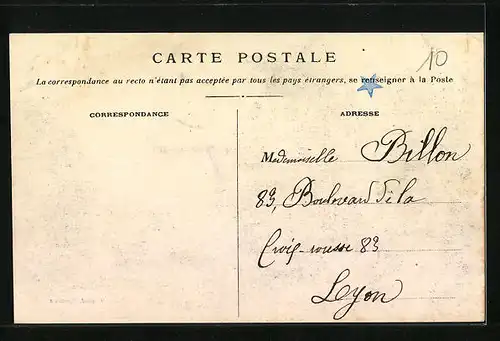 CARTE POSTALE
10
La correspondance au recto n'étant pas acceptée par tous les pays étrangers, se renseigner à la Poste
CORRESPONDANCE
ADRESSE
Mademoiselle Billon
83, Boulevard de la
Croix-rousse 83
Lyon